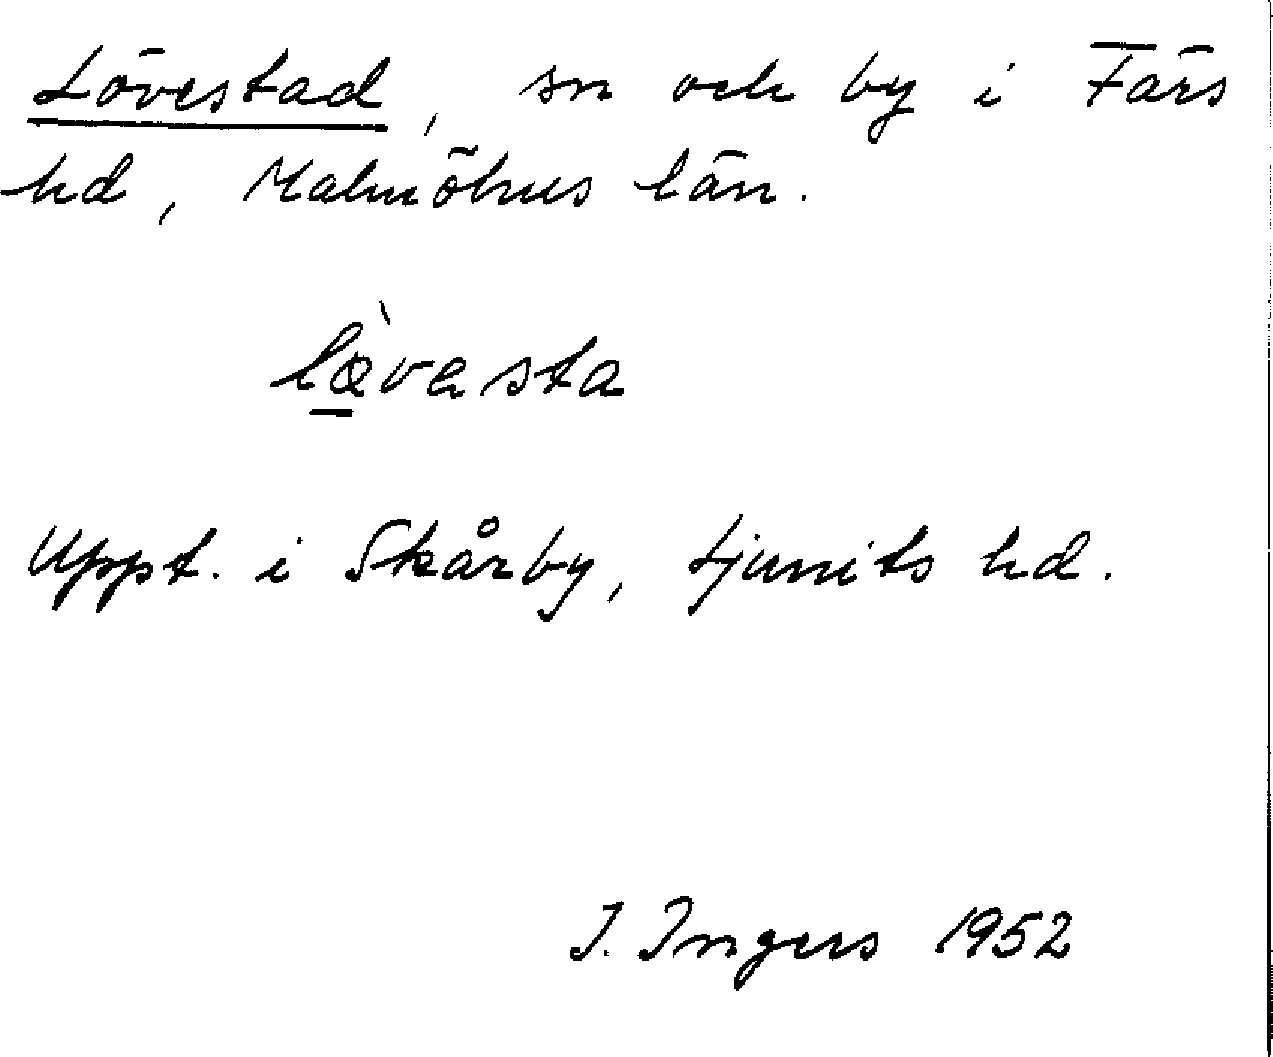 Lövestad, sn och by i Färs
hd, Malmöhus län.
læ̠̀vasta
Uppt. i Skårby, Ljunits hd.
I. Ingers 1952